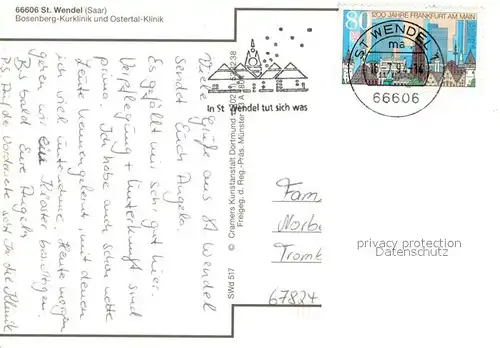 66606 St. Wendel (Saar)
Bosenberg-Kurklinik und Ostertal-Klinik
Viele Grüße aus St Wendel
sendet Euch Angela.
Es gefällt mir sehr gut hier.
Verpflegung + Unterkunft sind
prima. Ich habe auch schon nette
Leute kennengelernt, mit denen
ich viel unternehme. Heute morgen
gehen wir ein Kloster besichtigen.
Bis bald Eure Angela
P.S. Auf der Vorderseite seht Ihr die Klinik
In St. Wendel tut sich was
80
1200 JAHRE FRANKFURT AM MAIN
ST WENDEL 1
ma
66606
SWd 517
© Cramers Kunstanstalt Dortmund
Freigeg. d. Reg.-Präs. Münster
Fam.
Norbe
Tromb
67824
privacy protection
Datenschutz